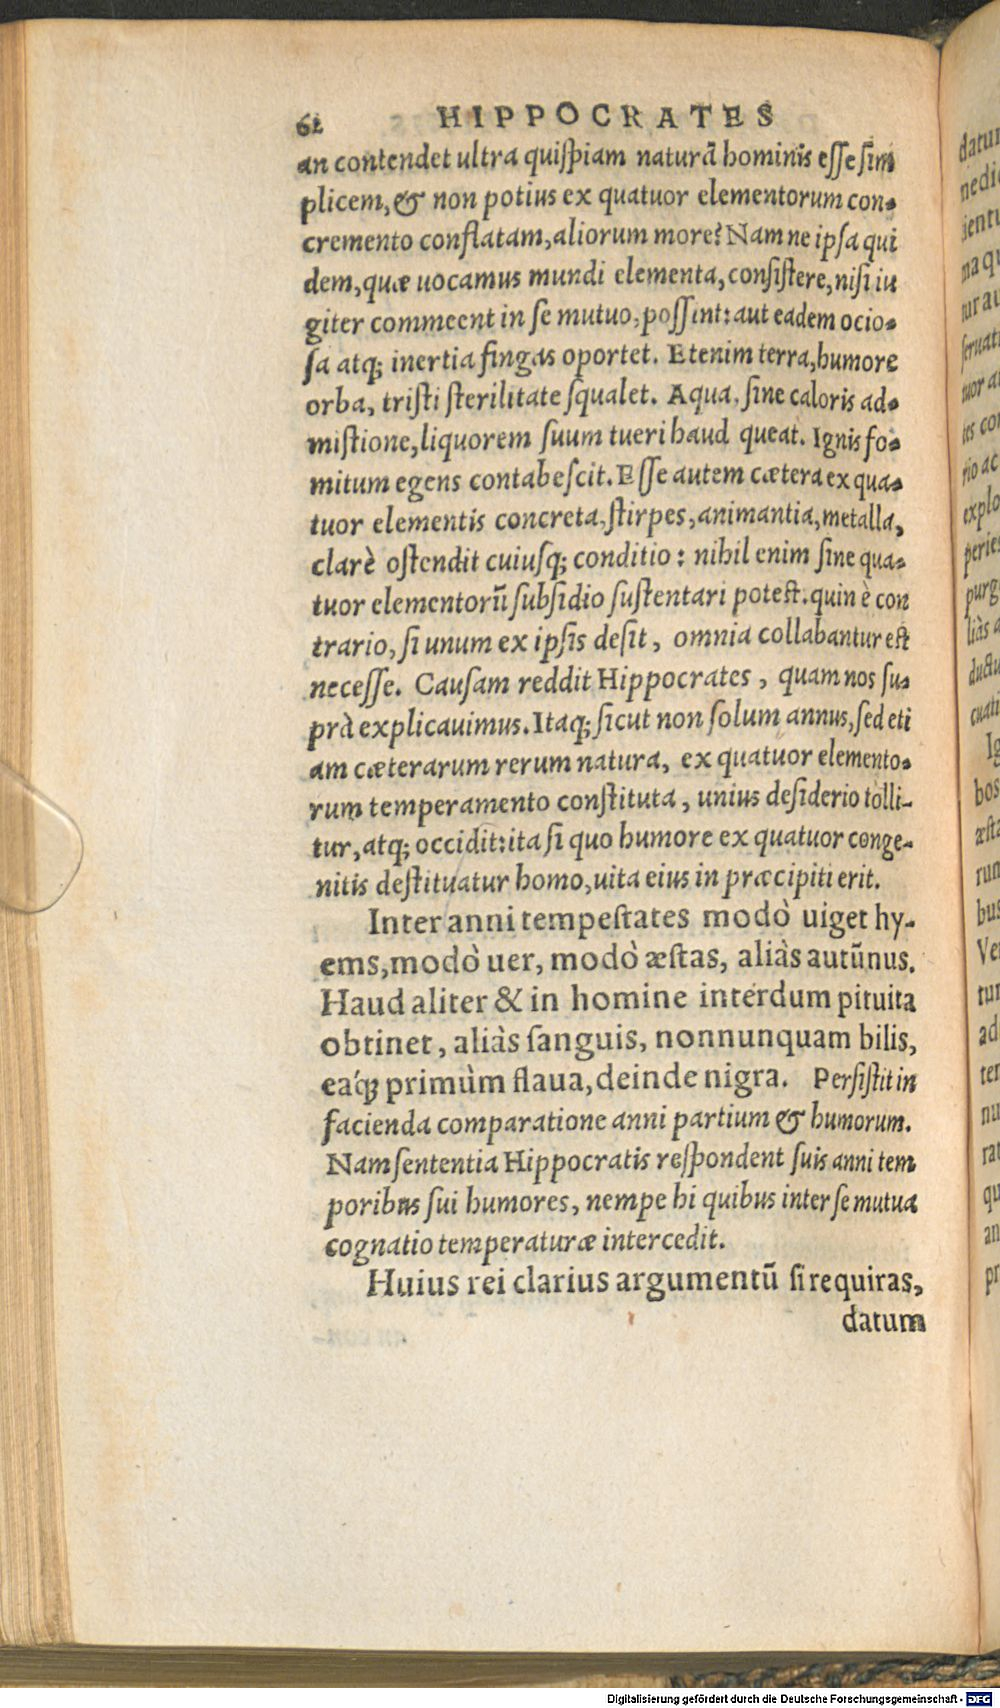 62 HIPPOCRATES
an contendet ultra quiſpiam naturã hominis eſſe ſim
plicem, & non potius ex quatuor elementorum con-
cremento conflatam, aliorum more? Nam ne ipſa qui
dem, quæ uocamus mundi elementa, conſiſtere, niſi iu
giter commeent in ſe mutuo, poſſint: aut eadem ocio-
ſa atq; inertia fingas oportet. Etenim terra, humore
orba, triſti ſterilitate ſqualet. Aqua, ſine caloris ad-
miſtione, liquorem ſuum tueri haud queat. Ignis fo-
mitum egens contabeſcit. Eſſe autem cætera ex qua-
tuor elementis concreta, ſtirpes, animantia, metalla,
clarè oſtendit cuiuſq; conditio: nihil enim ſine qua-
tuor elementorũ ſubſidio ſuſtentari poteſt. quin è con
trario, ſi unum ex ipſis deſit, omnia collabantur eſt
neceſſe. Cauſam reddit Hippocrates, quam nos ſu-
prà explicauimus. Itaq; ſicut non ſolum annus, ſed eti
am cæterarum rerum natura, ex quatuor elemento-
rum temperamento conſtituta, unius deſiderio tolli-
tur, atq; occidit: ita ſi quo humore ex quatuor conge-
nitis deſtituatur homo, uita eius in præcipiti erit.
Inter anni tempeſtates modò uiget hy-
ems, modò uer, modò æſtas, aliàs autũnus.
Haud aliter & in homine interdum pituita
obtinet, aliàs ſanguis, nonnunquam bilis,
eáq; primùm flaua, deinde nigra. Perſiſtit in
facienda comparatione anni partium & humorum.
Nam ſententia Hippocratis reſpondent ſuis anni tem
poribus ſui humores, nempe hi quibus inter ſe mutua
cognatio temperaturæ intercedit.
Huius rei clarius argumentũ ſi requiras,
datum
Digitalisierung gefördert durch die Deutsche Forschungsgemeinschaft - DFG